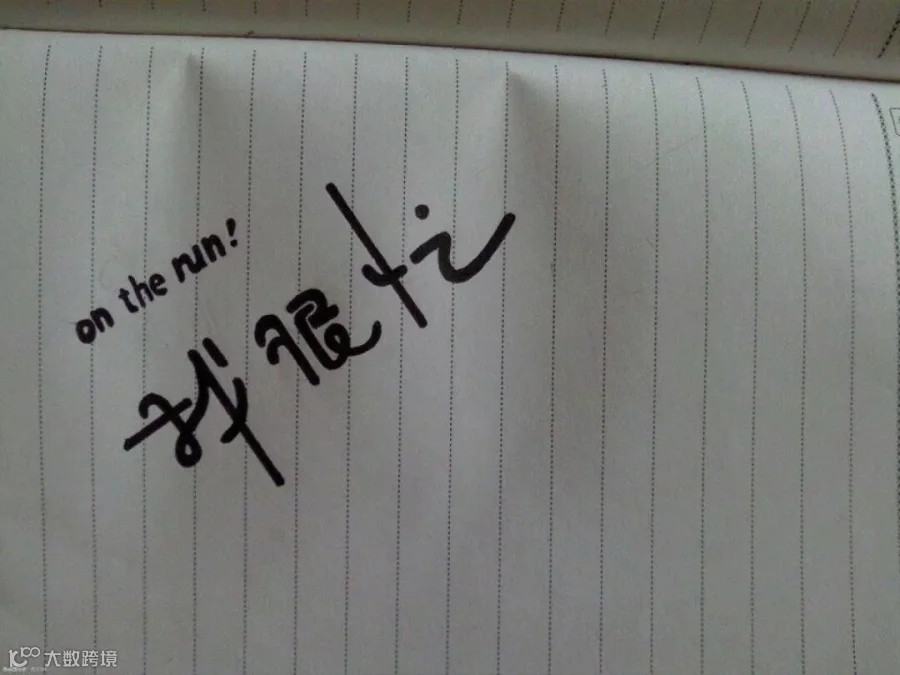 on the run!
我很忙
大数跨境